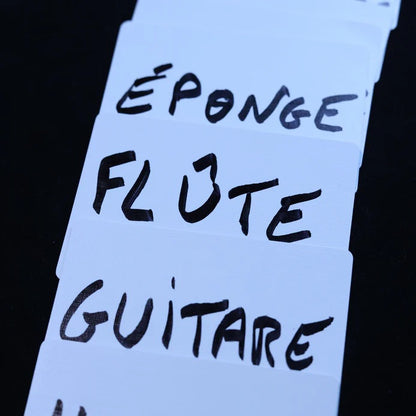 ÉPONGE
FLÛTE
GUiTARE